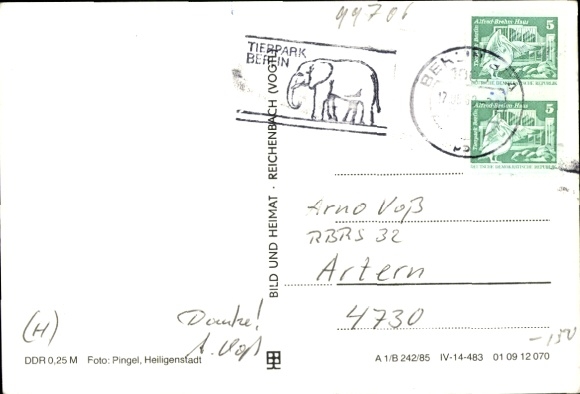 99706
TIERPARK
BERLIN
BERLIN
5
Alfred-Brehm Haus
Tierpark Berlin
DEUTSCHE DEMOKRATISCHE REPUBLIK
5
Alfred-Brehm Haus
Tierpark Berlin
DEUTSCHE DEMOKRATISCHE REPUBLIK
BILD UND HEIMAT · REICHENBACH (VOGTL
Arno Voß
RBRS 32
Artern
4730
(H)
Danke!
A. Voß
-150
DDR 0,25 M Foto: Pingel, Heiligenstadt
A 1/B 242/85 IV-14-483 01 09 12 070